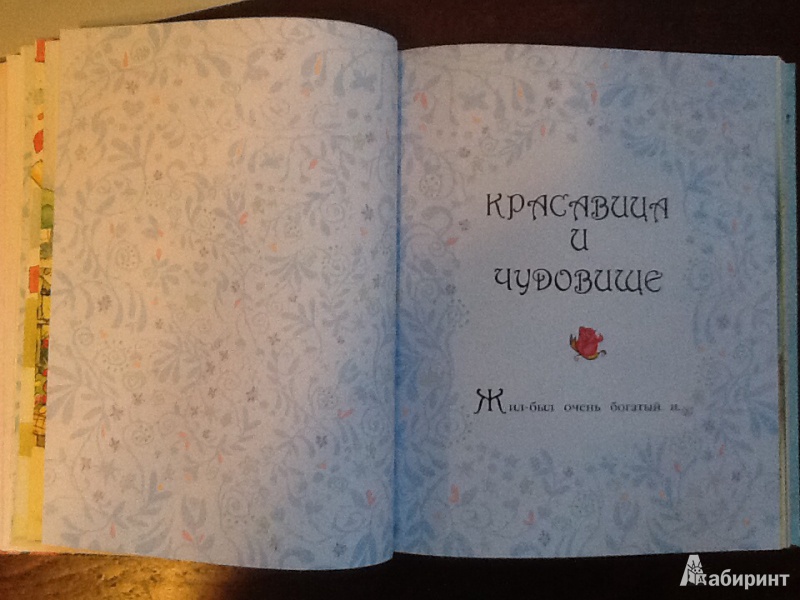 КРАСАВИЦА
И
ЧУДОВИЩЕ
Жил-был очень богатый и
Лабиринт